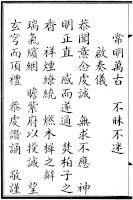 常明萬古　不昧不迷
啟奏儀
恭聞意念虔誠　無求不應　神
明正直　感而遂通　焚柏子之
香　祥煙繚繞　燃木樨之辦
瑞氣繽綑　瞻紫府以投誠　望
玄穹而頂禮　恭虔讚誦　敬謹